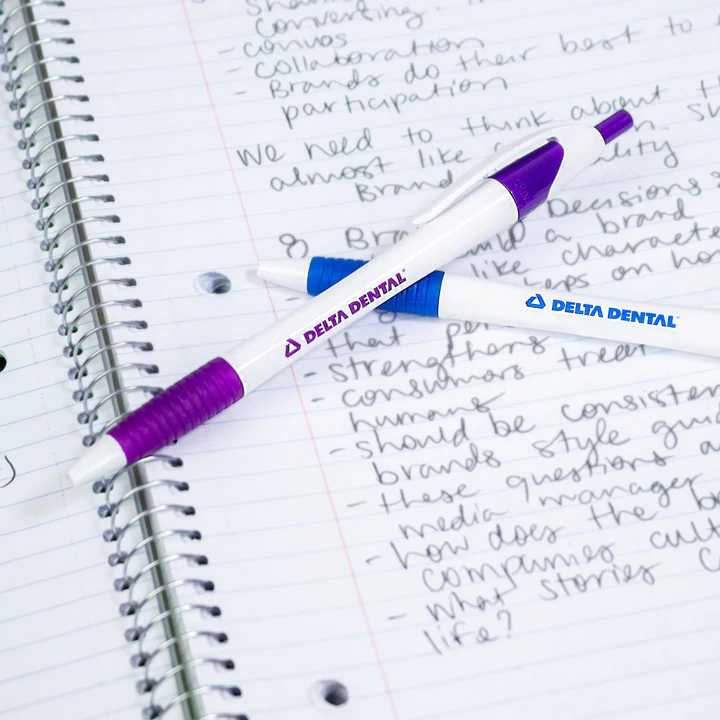 conversing.
- canvas
- collaboration
- Brands do their best to
participation
we need to think about t
almost like
Brand
8 Decisions
a brand
like characte
on ho
DELTA DENTAL
DELTA DENTAL
that
- strengthens
- consumers treat
humans
- should be consisten
brands style gui
- these questions a
media manager
- how does the b
companies cult
- what stories c
life?